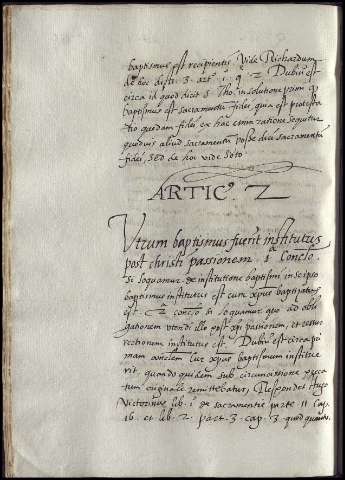 baptismus est recipientis. Vide Richardum
de hoc disti. 3. art. 1. q. 2. Dubiũ est
circa id quod dicit S. Tho. in solutione primi q
baptismus est sacramentũ fidei, quia est protesta
tio quædam fidei ex hac enim ratione sequitur
quoduis aliud sacramentũ posse dici sacramentũ
fidei, sed de hoc vide Soto
ARTICº. 2
Vtrum baptismus fuerit institutus
post christi passionem. 1ª Concło.
Si loquamur de institutione baptismi in se ipso
baptismus institutus est cum xpus baptizatus
est. 2ª concło si loquamur quo ad obli
gationem vtendi illo post xp̃i passionem, et resur
rectionem institutus est. Dubiũ est circa pri
mam cur xpus baptismum institue
rit, quando quidem sub circuncisione pecca
tum originale remittebatur, Respondet Hugo
Victorinus lib. 1 de sacramentis parte 11 cap.
16. et lib. 2. part. 3. cap. 3. quod quamvis